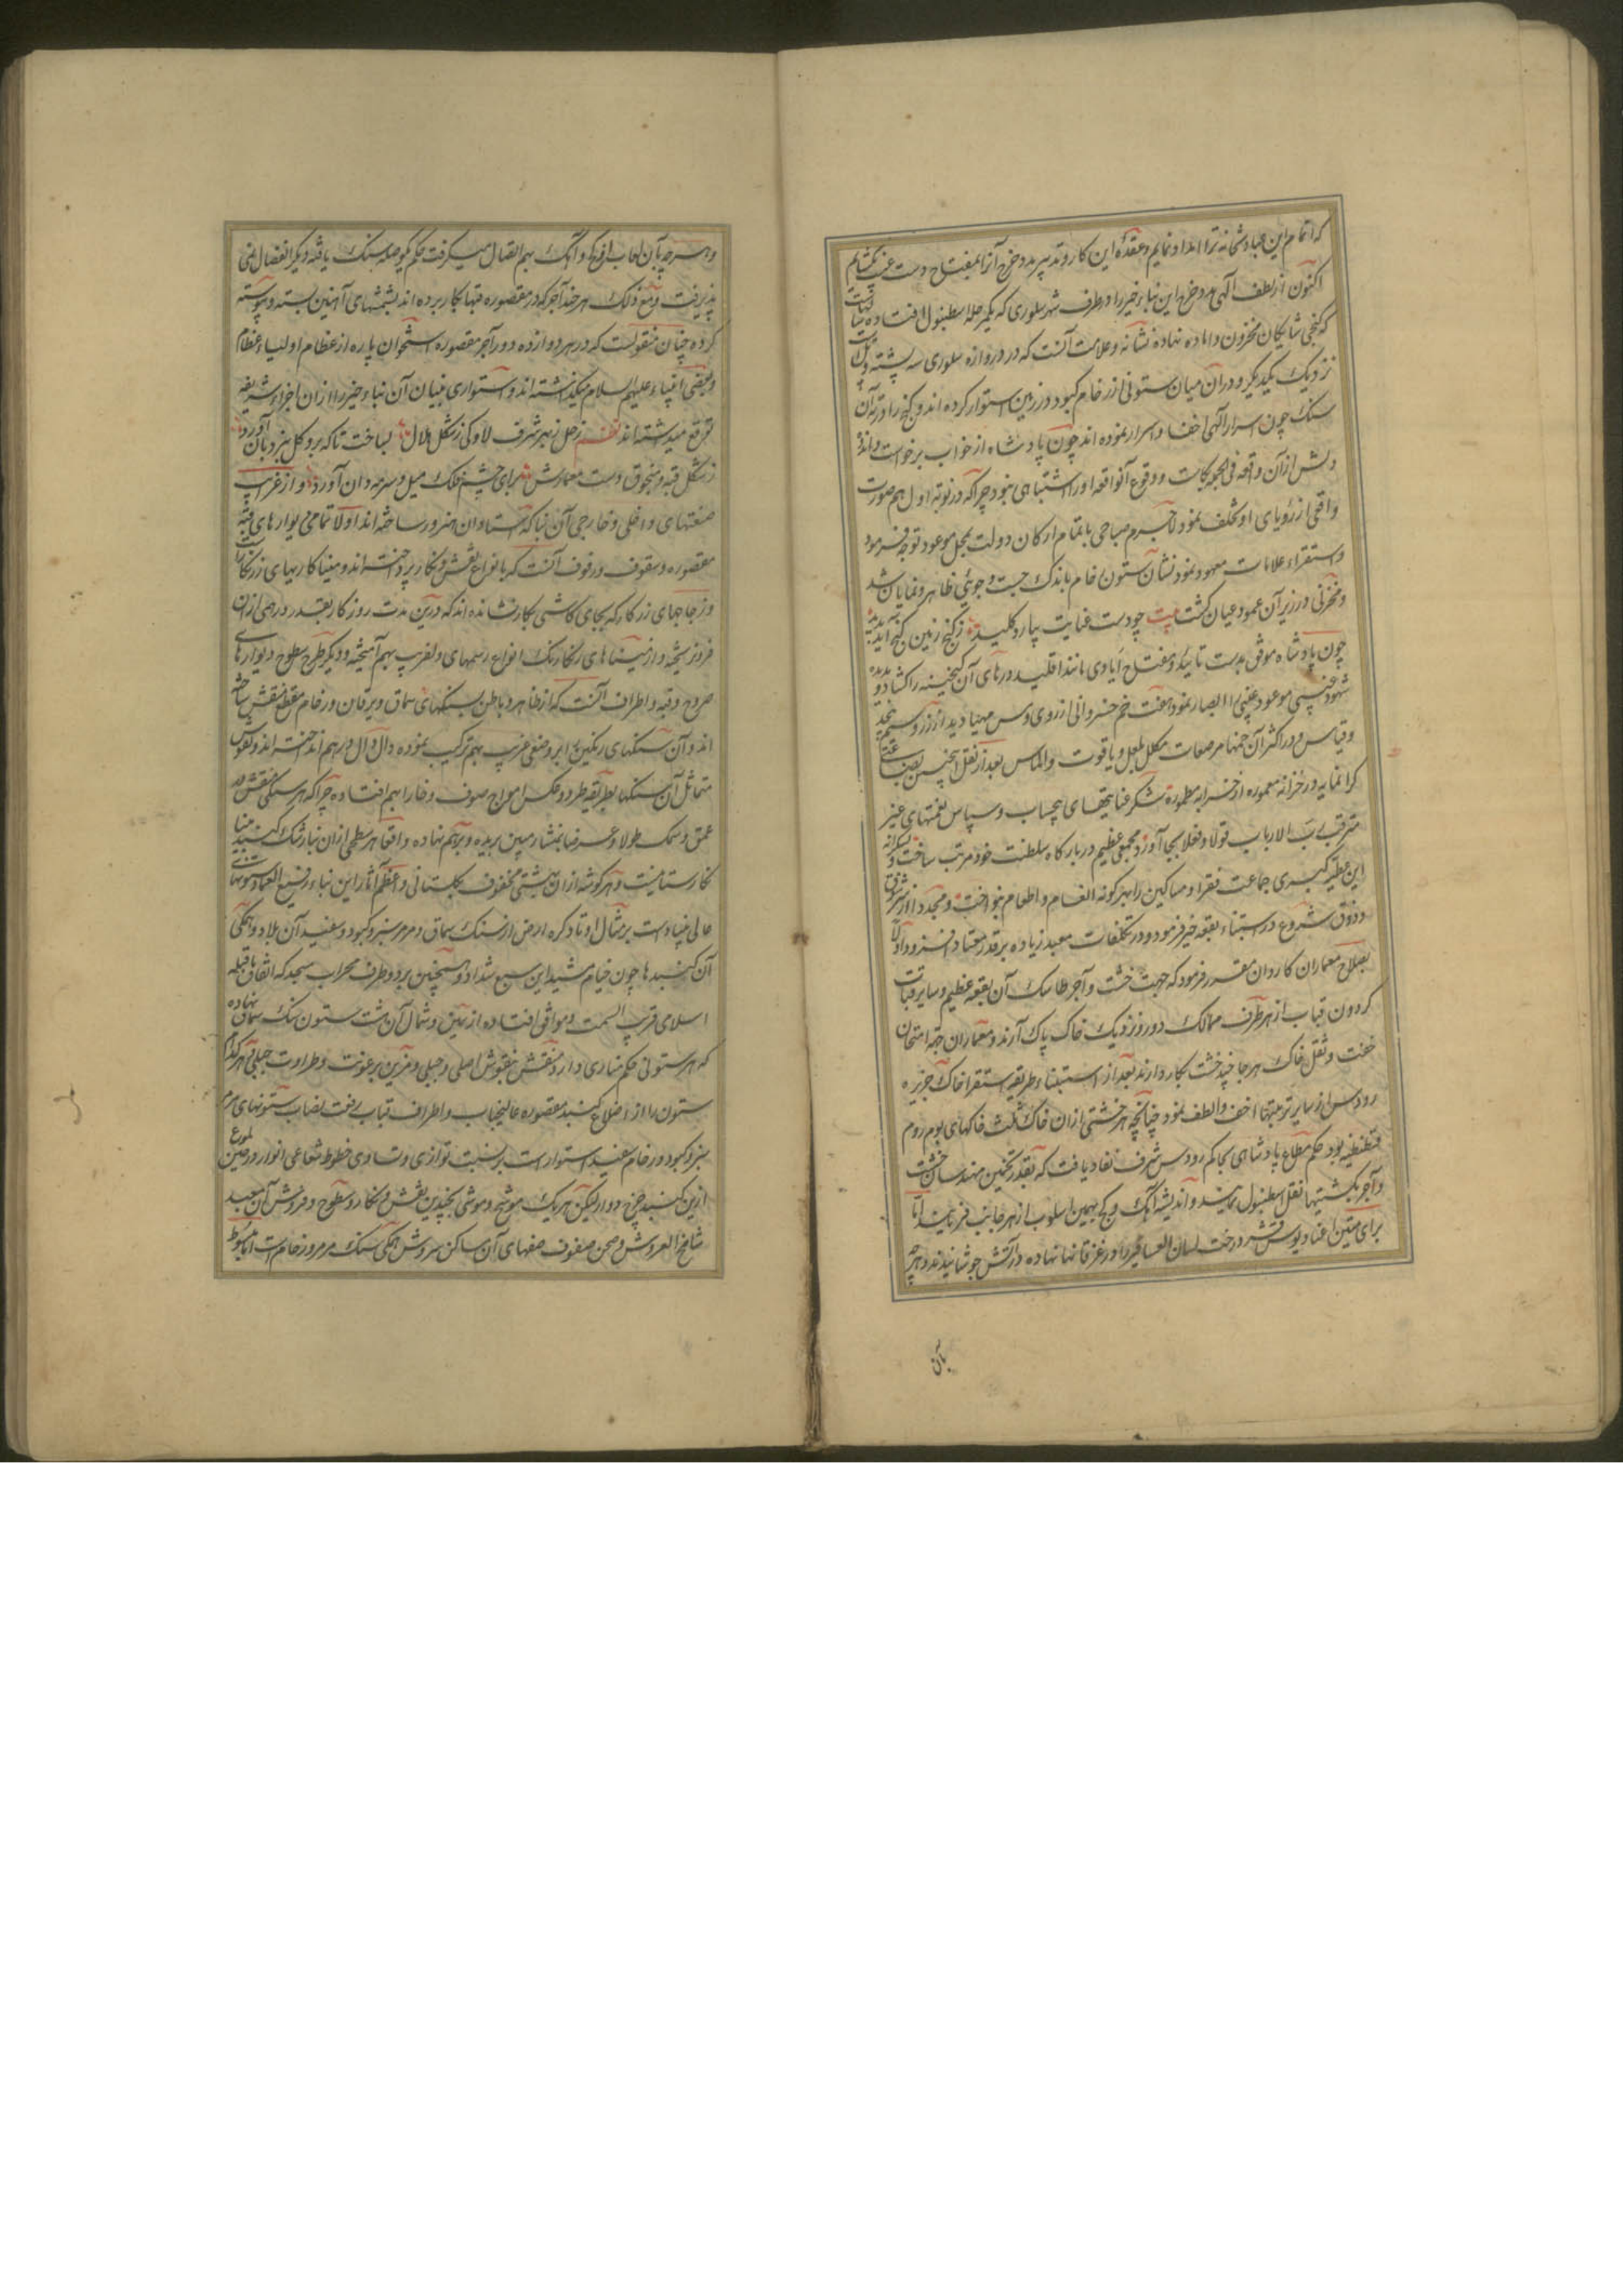 که اتمام این عبادتخانه ترا امداد نمایم و عقده این کار و تدبیر مدد خرج آنرا بمفتاح دست غیب بگشایم
اکنون از لطف الهی مدد خرج این بناء خیر را در طرف شهر سلوری که یکمرحله اسطنبول افتاده
که گنجی شایکان مخزون و اماده نهاده نشانه و علامت آنست که در دروازه سلوری سه پشته
نزدیک یکدیگر و در آن میان ستونی از رخام کبود در زمین استوار کرده اند و گنج را در ته آن
سنک چون اسرار الهی اخفا و اسرار نموده اند چون پادشاه از خواب برخواست
و پیش از آن واقعه فی الجمله و وقوع آنواقعه او را اشتباهی نبود چرا که در نوبه اول هم صورت
واقعی از رؤیای او تخلف ننمود لاجرم صباحی باتمام ارکان دولت بمحل موعود توجه فرمود
و استقراء علامات معهود نمود نشان ستون خام باندک جست و جوئی ظاهر و نمایان شد
و مخزنی در زیر آن عمود عیان کشت بیت چو دست عنایت بیارد کلید ز کنج زمین گنج آید پدید
چون پادشاه موفق بدست تایید و بمفتاح ایادی مانند اقلید درهای آن گنجینه را کشاد و
شهود غیبی موعود غیبی را ابصار نمود هفت خم خسروانی از روی و مس مهیا دید از زر و سیم
و قیاس و در اکثر آن خمها مرصعات مکلل بلعل و یاقوت و الماس بعد از نقل اینچنین
گرانمایه در خزانه معموره از خرابه مطموره شکر عنایتهای بیحساب و سپاس نعمتهای غیر
مترقب رب الارباب قولا و فعلا بجا آورد و مجمعی عظیم در بارگاه سلطنت خود مرتب ساخت و
این عطیه کبری جماعت فقرا و مساکین را بهر کونه انعام و اطعام بنواخت و مجددا از سر شوق
و ذوق شروع در استبناء بقعه خیر فرمود و در تکلفات معبد زیاده بر قدر معتاد افزود و اولا
بصلاح معماران کاردان مقرر فرمود که جهت خشت و آجر طاسک آن بقعه عظیم و سایر قبات
کردون قباب از هر طرف ممالک دور و نزدیک خاک پاک آرند و معماران جهة امتحان
خفت و ثقل خاک هر جا خشت بکار دارند بعد از استبناء طریقه استقرا خاک جزیره
رودس از سایر تربتها اخف و الطف نمود چنانچه هر خشتی از ان خاک ثلث خاکهای بوم روم
قسطنطنیه بود حکم مطاع پادشاهی بحاکم رودس شرف نفاد یافت که بقدر تخمین مهندسان خشت
و آجر بکشتیها نقل اسطنبول نمایند و اندیشه آهک و گچ بهمین اسلوب از هر جانب فرمایند اما
برای متین اعتاد پوست درخت لسان العصافیر را در غزقانها نهاده در آتش جوشانیدند و هر چه
بآن
و هر چه بآن لعاب آهک بهم اتصال میگرفت حکم یکپاره سنک یافته دیگر انفصال نمی
پذیرفت و مع ذلک هر چند آجر که در مقصوره قبها بکار برده اند بشمشهای آهنین بسته و پیوسته
کرده چنان منقولست که در هر دوازده دور آجر مقصوره استخوان پاره از عظام اولیاء عظام
و بعضی انبیاء علیهم السلام میگذاشته اند و استواری بنیان آن بناء خیر را از ان اجزاء شریفه
توقع میداشته اند نظم زحل زهر شرف لاوکی ز شکل هلال بساخت تا که برو کل بنردبان آورد
ز شکل قبه و منجوق دست معمارش برای چشم فلک میل و سرمه دان آورد و از غرایب
صنعتهای داخلی و خارجی آن بنا که استادان هنرور ساخته اند اولا تمامی دیوارهای قبه
مقصوره و سقوف و رفوف آنست که بانواع نقش و نکار پرداخته اند و مینا کاریهای زرنکار
و زجاجهای زرکار که بجای کاشی بکار نشانده اند که درین مدت روزکار بقدر درهمی از ان
فرو نریخته و از میناهای رنکارنک انواع رسمهای دلفریب بهم آمیخته و دیگر طرح سطوح دیوارهای
صروح و قبه و اطراف آنست که از ظاهر و باطن بسنکهای سماق و یرقان و رخام مقطع منقش ساخته
اند و آن سنکهای رنکین را بر وضعی غریب بهم ترکیب نموده دال و آل در هم انداخته اند و نقوش
متماثل آن سنکها بطریقه طرد و عکس امواج صوف و خارا بهم افتاده چرا که هر سنکی نقش دار
عمق و سمک طولا و عرضا بمنشار مبین بریده و بر هم نهاده و اقعا هر سطحی از ان بنا رشک کنبد مینا
نکارستانیست و هر کوشه از ان بهشتی محفوف بکلستانی و اعظم آثار این بناء رفیع العماد ستونهای
عالی بنیادست بر مثال اوتاد کره ارض از سنک سماق و مرمر سبز و کبود و سفید آن بلاد و همکی
آن کنبدها چون خیام مشید این سبع شداد و همچنین بر دو طرف محراب مسجد که اتفاق باقبله
اسلامی قریب السمت و موافق افتاده از یمین و شمال آن هشت ستون سنک سماق نهاده
که هر ستونی حکم مناری دارد منقش بنقوش اصلی و جبلی و مزین برعونت و طراوت جبلی هر کدام
ستون را از اضلاع کنبد مقصوره عالیجناب و اطراف قباب رفعت نصاب ستونهای مرمر
سبز و کبود و رخام سفید استوار است بر نسبت توازی و تساوی خطوط شعاعی انوار و در صحن
ازین کنبد چرخ دوار لیکن هر یک موشح و موشی بچندین نقش و نکار و سطوح و فروش آن معبد
شامخ العروش و صحن صفوف صفهای آن ساکن سروش همکی سنک مرمر و رخامست اما مبسوط